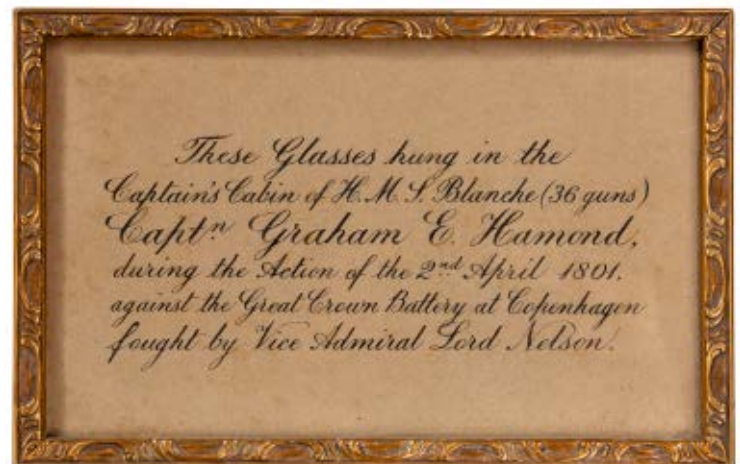 These Glasses hung in the
Captain's Cabin of H.M.S. Blanche (36 guns)
Captⁿ Graham E. Hamond,
during the Action of the 2nd April 1801.
against the Great Crown Battery at Copenhagen
fought by Vice Admiral Lord Nelson.